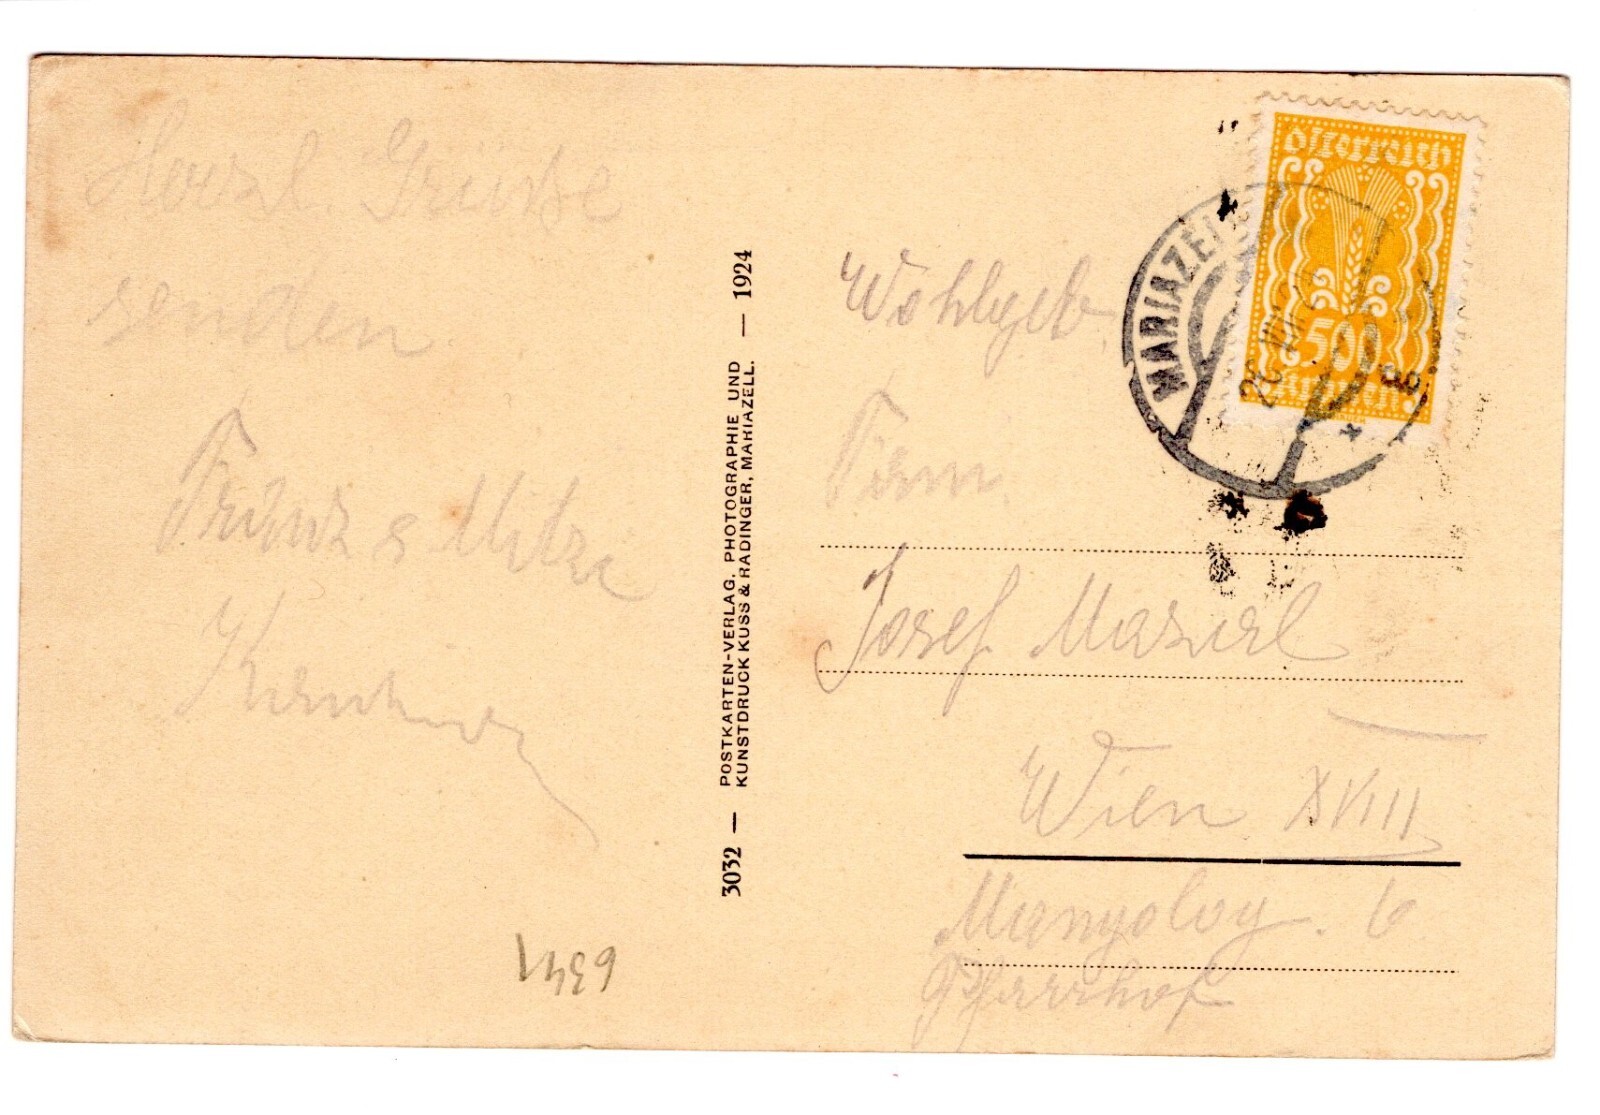 Herzl. Grüße
senden
Franz & Mitzi
3032 — POSTKARTEN-VERLAG, PHOTOGRAPHIE UND — 1924
KUNSTDRUCK KUSS & RADINGER, MARIAZELL.
6341
Österreich
500
Kronen
MARIAZELL
Wohlgeb.
Fam.
Josef
Wien XVIII
6
Pfarrhof